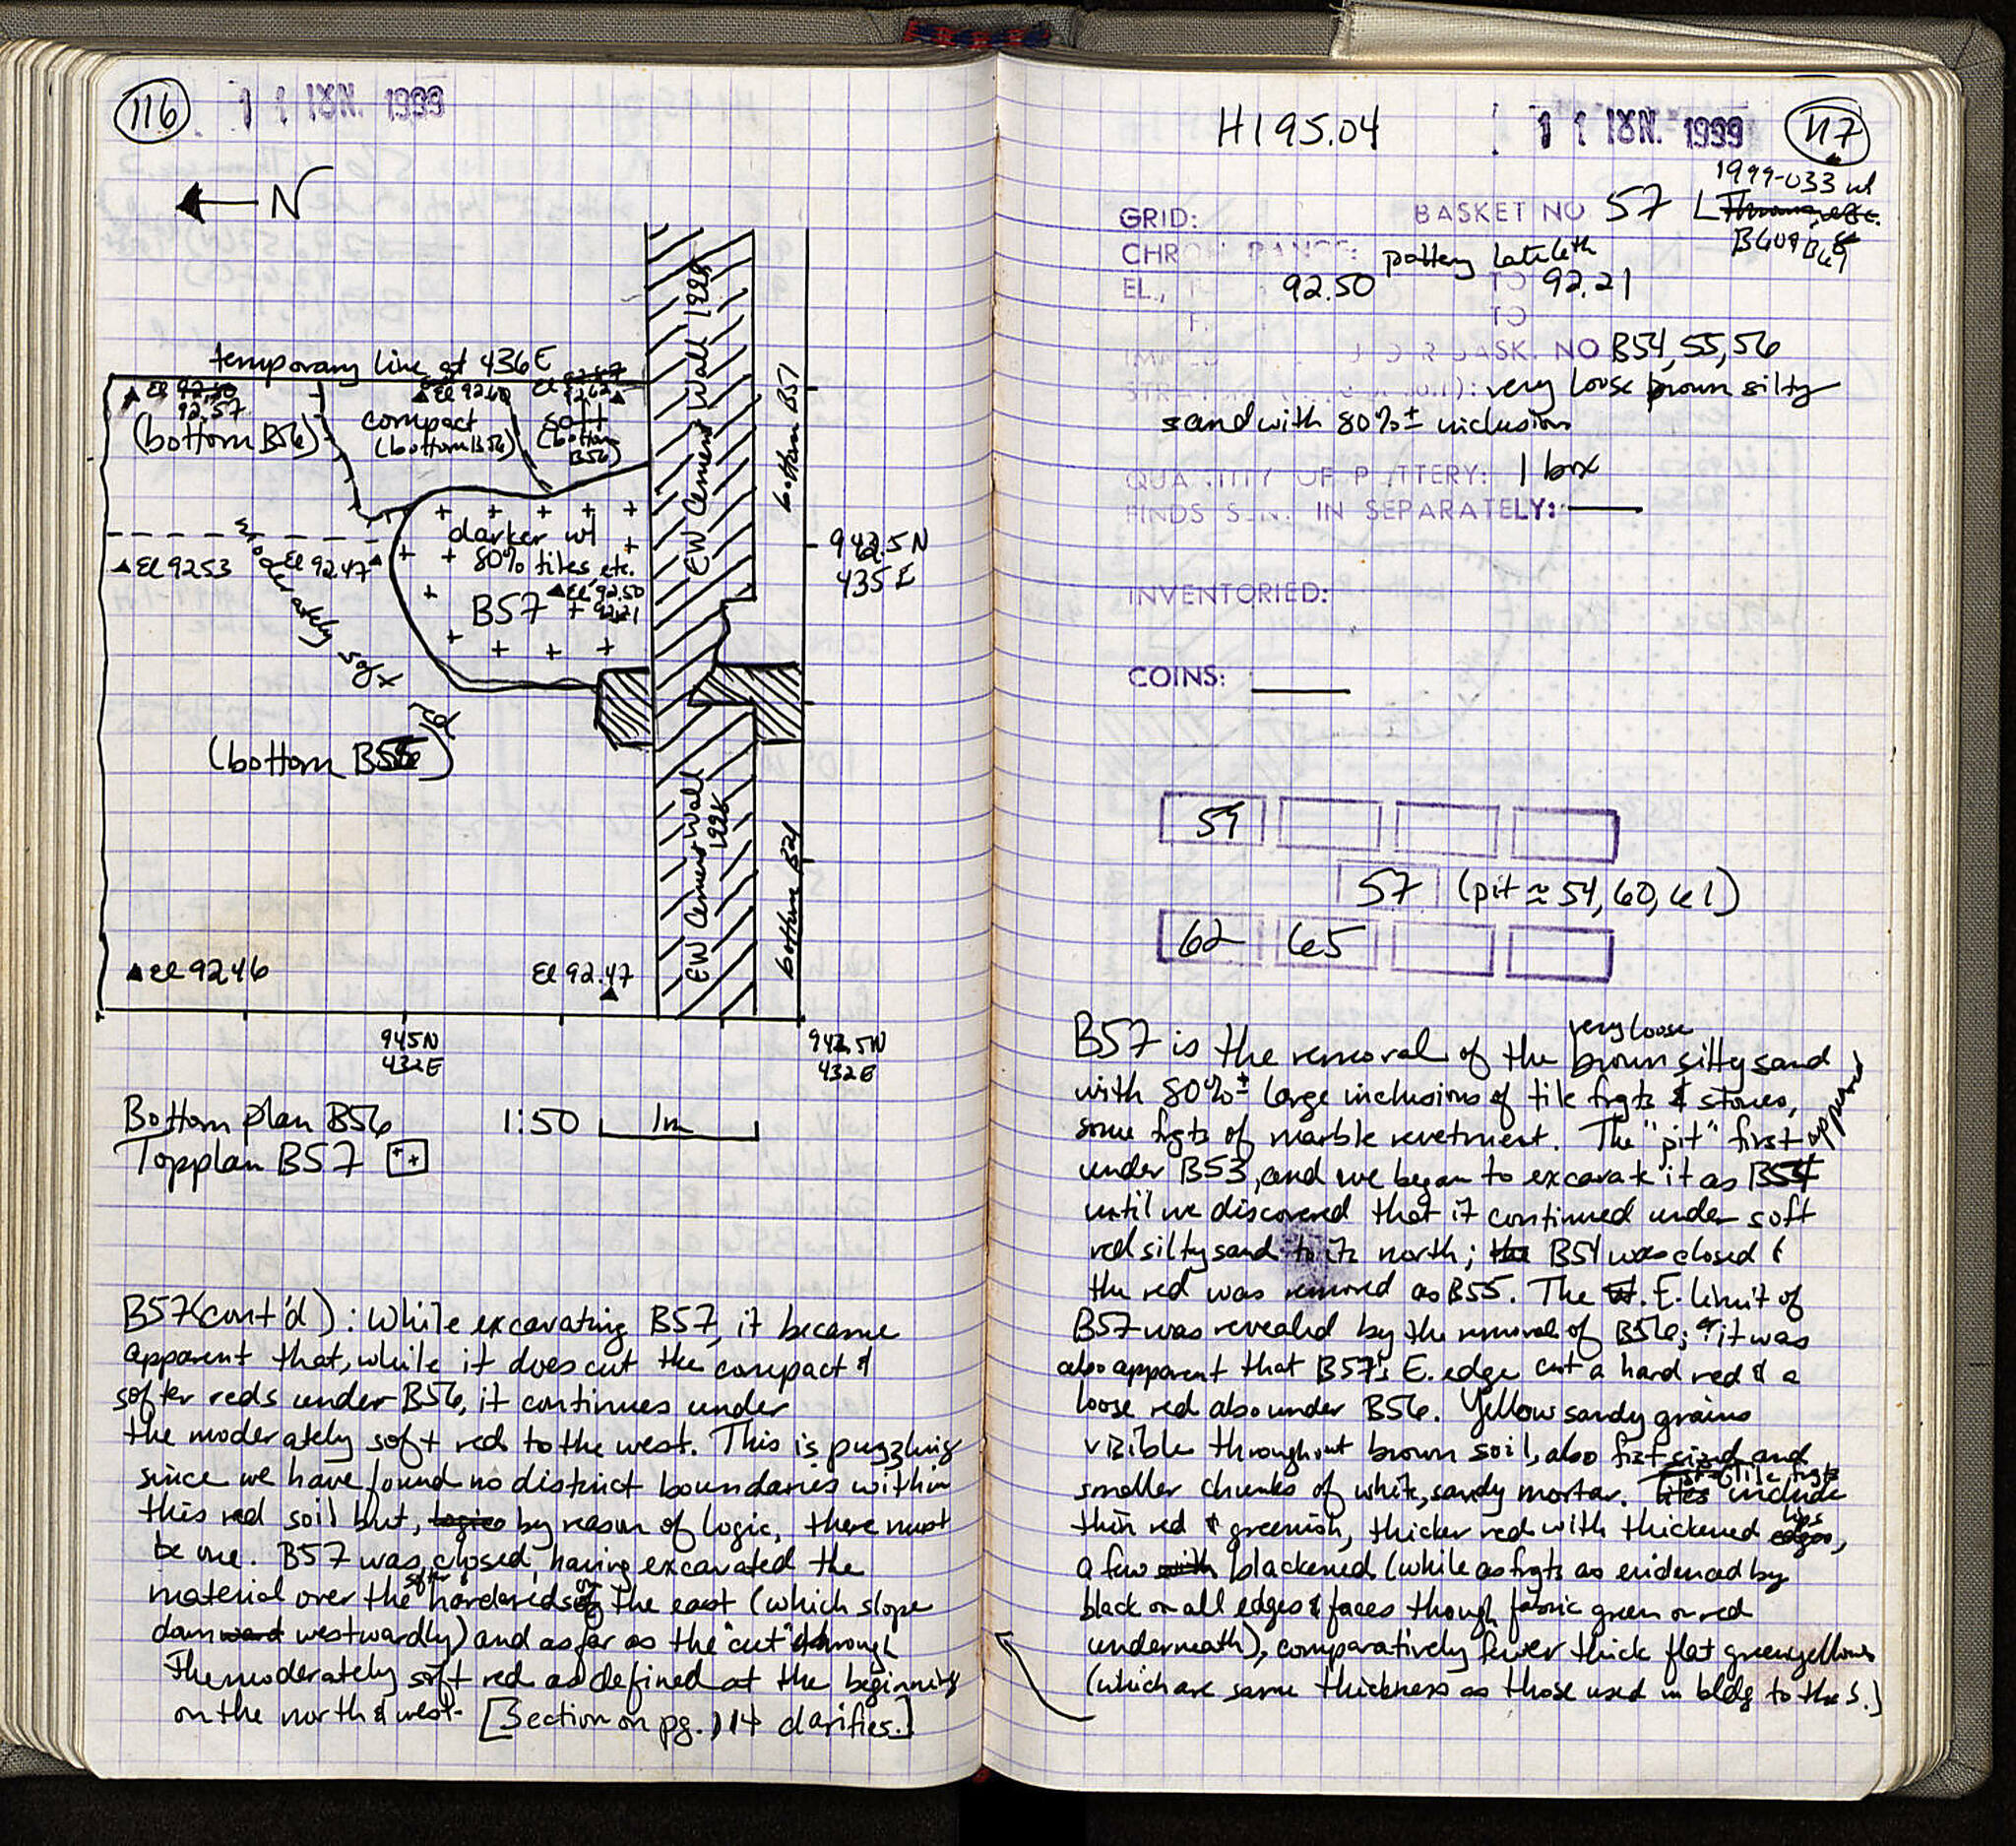 116
11 ΙΟΥΝ. 1999
N
temporary line at 436E
El 92.50
92.57
(bottom B56)
El 92.60
compact
(bottom B56)
El 92.57
92.62
soft
(bottom
B56)
EW Cement Wall 1998
bottom B51
darker w/
80% tiles, etc.
El 92.53
El 92.47
El 92.50
B57
92.21
moderately soft
red
942.5N
435E
(bottom B56)
EW Cement Wall
1998
bottom B21
El 92.46
El 92.47
945N
432E
942.5N
432E
Bottom plan B56 1:50 1m
Topplan B57
B57 (cont'd): While excavating B57, it became
apparent that, while it does cut the compact &
softer reds under B56, it continues under
the moderately soft red to the west. This is puzzling
since we have found no distinct boundaries within
this red soil but, logic by reason of logic, there must
be one. B57 was closed, having excavated the
material over the softer & harder reds on the east (which slope
downward westwardly) and as far as the "cut" through
the moderately soft red as defined at the beginning
on the north & west. [Section on pg. 114 clarifies.]
H195.04
11 ΙΟΥΝ. 1999
117
1999-033 w/
B60 & B61
GRID:
BASKET NO 57
CHRON. RANGE: pottery late 6th
EL., 92.50 TO 92.21
TO
BASK. NO B54, 55, 56
very loose brown silty
sand with 80%± inclusions
QUANTITY OF POTTERY: 1 box
FINDS SENT IN SEPARATELY: —
INVENTORIED:
COINS: —
59
57 (pit ≈ 54, 60, 61)
62 65
B57 is the removal of the very loose brown silty sand
with 80%± large inclusions of tile frgts & stones,
some frgts of marble revetment. The "pit" first appeared
under B53, and we began to excavate it as B54
until we discovered that it continued under soft
red silty sand to its north; the B54 was closed &
the red was removed as B55. The W. E. limit of
B57 was revealed by the removal of B56; & it was
also apparent that B57's E. edge cut a hard red & a
loose red also under B56. Yellow sandy grains
visible throughout brown soil, also fist sized and
smaller chunks of white, sandy mortar. Tile frgts include
thin red & greenish, thicker red with thickened edges lips,
a few with blackened (while as frgts as evidenced by
black on all edges & faces though fabric green or red
underneath), comparatively fewer thick flat green yellows
(which are same thickness as those used in bldg to the S.)